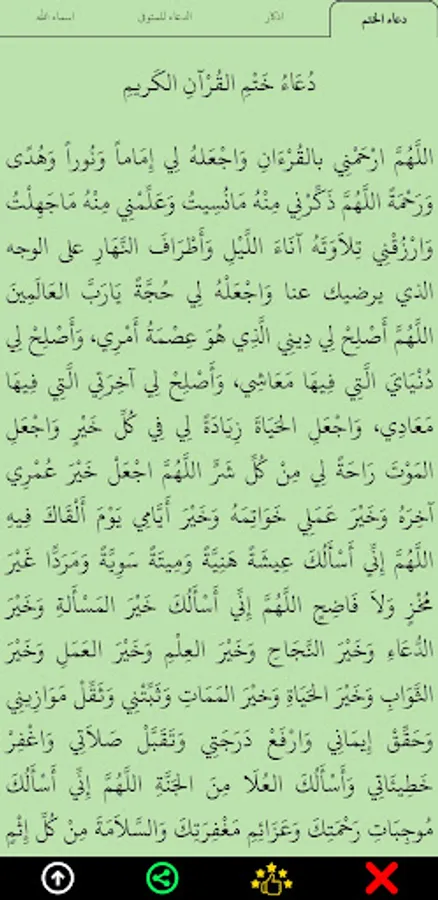 دعاء الختم
اذكار
الدعاء للمتوفي
اسماء الله
دُعَاءُ خَتْمِ القُرْآنِ الكَريمِ
اللَّهُمَّ ارْحَمْنِي بالقُرْءَانِ وَاجْعَلهُ لِي إِمَاماً وَنُوراً وَهُدًى
وَرَحْمَةً اللَّهُمَّ ذَكِّرْنِي مِنْهُ مَانُسِيتُ وَعَلِّمْنِي مِنْهُ مَاجَهِلْتُ
وَارْزُقْنِي تِلاَوَتَهُ آنَاءَ اللَّيْلِ وَأَطْرَافَ النَّهَارِ على الوجه
الذي يرضيك عنا وَاجْعَلْهُ لِي حُجَّةً يَارَبَّ العَالَمِينَ
اللَّهُمَّ أَصْلِحْ لِي دِينِي الَّذِي هُوَ عِصْمَةُ أَمْرِي، وَأَصْلِحْ لِي
دُنْيَايَ الَّتِي فِيهَا مَعَاشِي، وَأَصْلِحْ لِي آخِرَتِي الَّتِي فِيهَا
مَعَادِي، وَاجْعَلِ الحَيَاةَ زِيَادَةً لِي فِي كُلِّ خَيْرٍ وَاجْعَلِ
المَوْتَ رَاحَةً لِي مِنْ كُلِّ شَرٍّ اللَّهُمَّ اجْعَلْ خَيْرَ عُمْرِي
آخِرَهُ وَخَيْرَ عَمَلِي خَوَاتِمَهُ وَخَيْرَ أَيَّامِي يَوْمَ أَلْقَاكَ فِيهِ
اللَّهُمَّ إِنِّي أَسْأَلُكَ عِيشَةً هَنِيَّةً وَمِيتَةً سَوِيَّةً وَمَرَدًّا غَيْرَ
مُخْزٍ وَلاَ فَاضِحٍ اللَّهُمَّ إِنِّي أَسْأَلُكَ خَيْرَ المَسْأَلةِ وَخَيْرَ
الدُّعَاءِ وَخَيْرَ النَّجَاحِ وَخَيْرَ العِلْمِ وَخَيْرَ العَمَلِ وَخَيْرَ
الثَّوَابِ وَخَيْرَ الحَيَاةِ وَخيرَ المَمَاتِ وَثَبِّتْنِي وَثَقِّلْ مَوَازِينِي
وَحَقِّقْ إِيمَانِي وَارْفَعْ دَرَجَتِي وَتَقَبَّلْ صَلاَتِي وَاغْفِرْ
خَطِيئَاتِي وَأَسْأَلُكَ العُلَا مِنَ الجَنَّةِ اللَّهُمَّ إِنِّي أَسْأَلُكَ
مُوجِبَاتِ رَحْمَتِكَ وَعَزَائِمِ مَغْفِرَتِكَ وَالسَّلاَمَةَ مِنْ كُلِّ إِثْمٍ